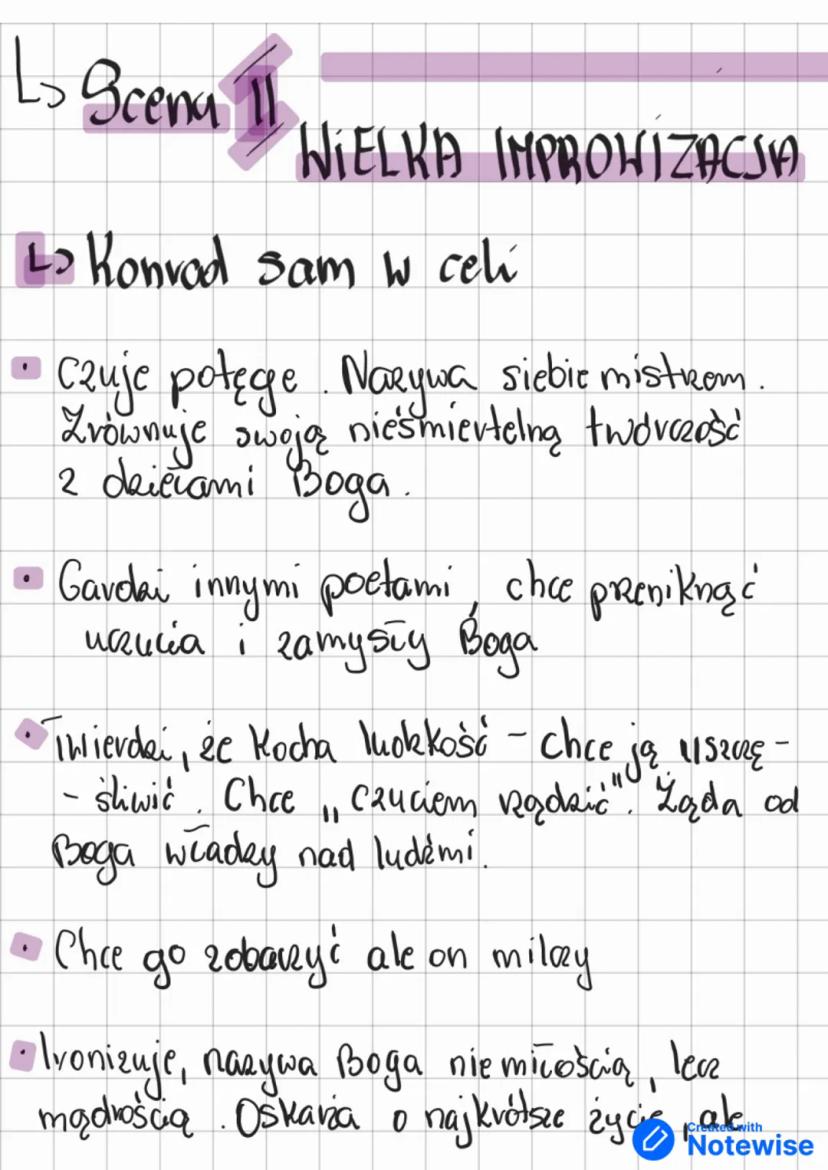 ↳ Scena II
WIELKA IMPROWIZACJA
↳ Konrad sam w celi
• Czuje potęgę. Nazywa siebie mistrzem.
Zrównuje swoją nieśmiertelną twórczość
z dziełami Boga.
• Gardzi innymi poetami, chce przeniknąć
uczucia i zamysły Boga
• Twierdzi, że kocha ludzkość – chce ją uszczę-
- śliwić. Chce „czuciem rządzić". Żąda od
Boga władzy nad ludźmi.
• Chce go zobaczyć ale on milczy
• Ironizuje, nazywa Boga nie miłością, lecz
mądrością. Oskarża o najkrótsze życie, ale
Created with
Notewise